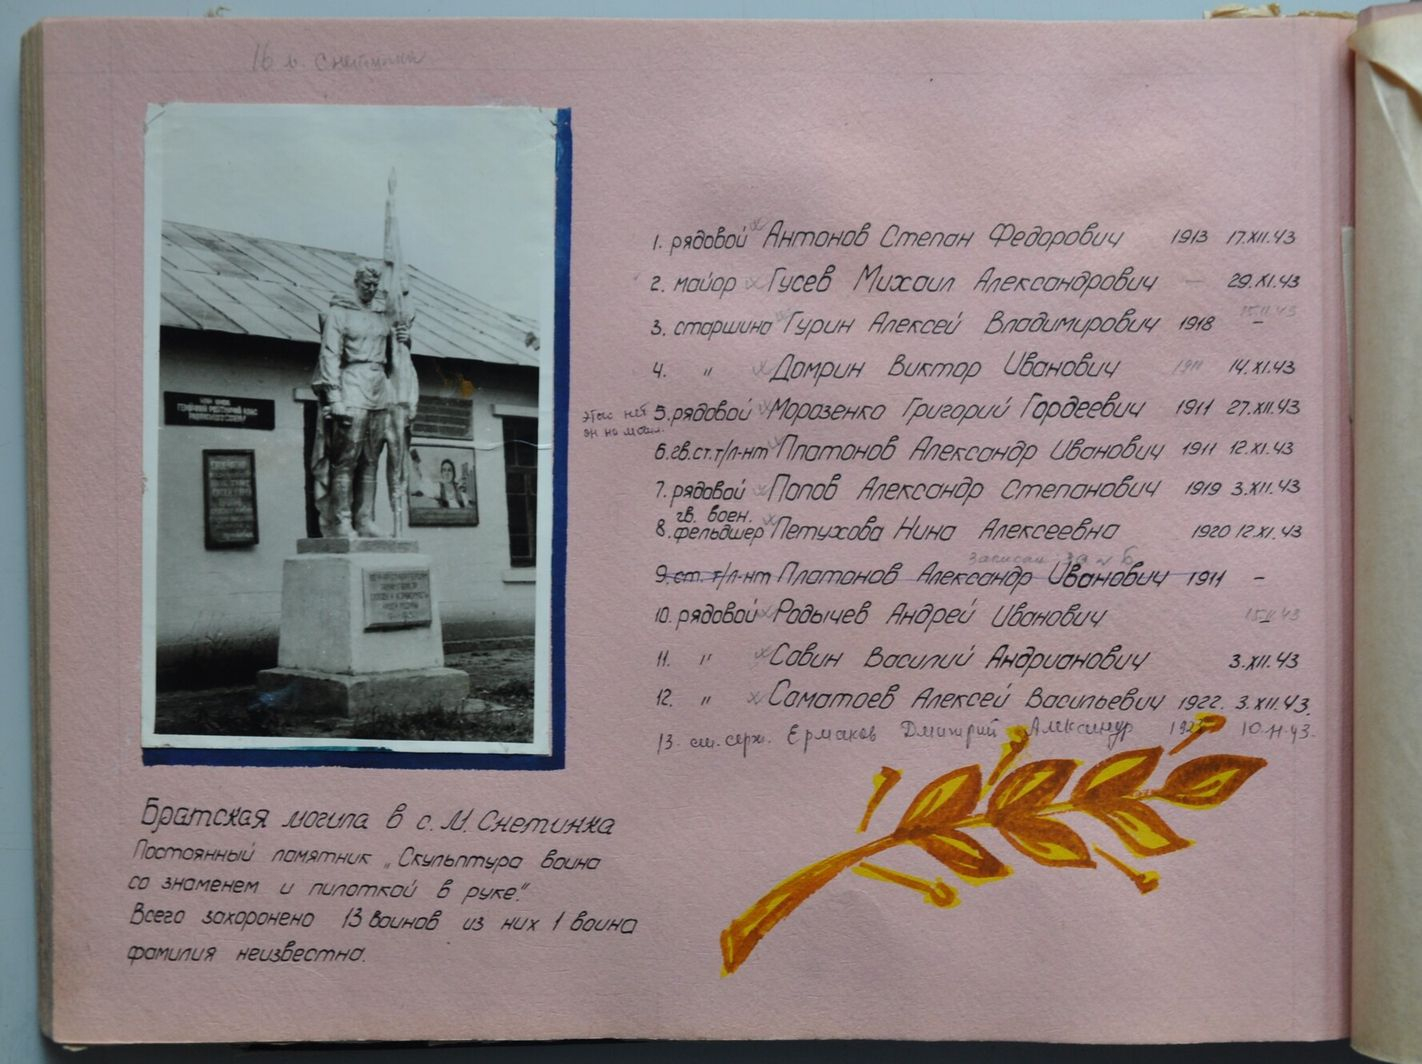 16 м. Снетинка
1. рядовой Антонов Степан Федорович 1913 17.XII.43
2. майор Гусев Михаил Александрович — 29.XI.43
3. старшина Гурин Алексей Владимирович 1918 – 15.II.43
4. " Домрин Виктор Иванович 1911 14.XI.43
5. рядовой Морозенко Григорий Гордеевич 1911 27.XII.43
6. гв.ст.т/л-нт Платонов Александр Иванович 1911 12.XI.43
7. рядовой Попов Александр Степанович 1919 3.XII.43
гв. воен.
8. фельдшер Петухова Нина Алексеевна 1920 12.XI.43
записан за № 6
9. ст. т/л-нт Платонов Александр Иванович 1911 –
10. рядовой Родычев Андрей Иванович 15.II.43
11. " Савин Василий Андрианович 3.XII.43
12. " Саматоев Алексей Васильевич 1922. 3.XII.43.
13. ст. серж. Ермаков Дмитрий Александр 10.11.43.
Братская могила в с. М. Снетинка
Постоянный памятник „Скульптура воина
со знаменем и пилоткой в руке".
Всего захоронено 13 воинов из них 1 воина
фамилия неизвестна.